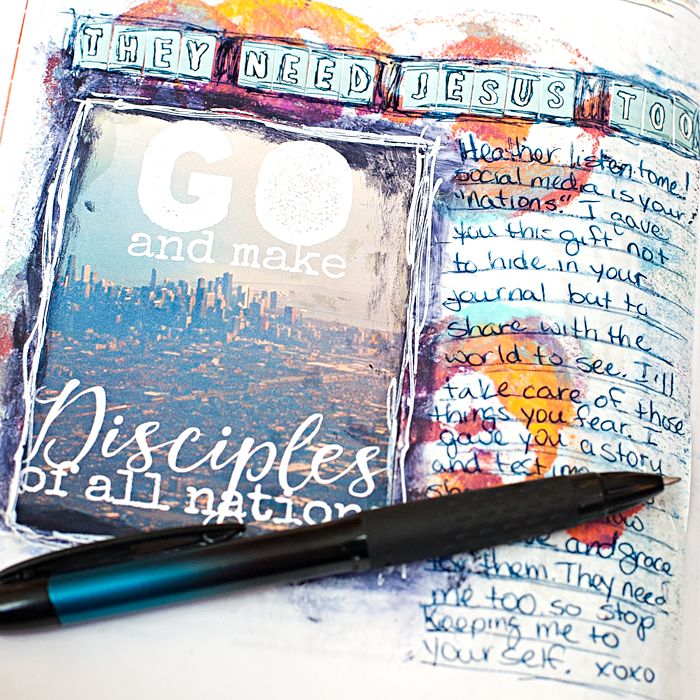 THEY NEED JESUS TOO
GO
and make
Disciples
of all nation
Heather listen to me!
social media is your
"nations". I gave
you this gift not
to hide in your
journal but to
share with the
world to see. I'll
take care of those
things you fear. I
gave you a story
and
and grace
them. They need
me too so stop
keeping me to
yourself. xoxo